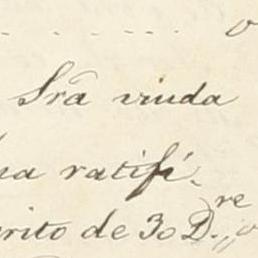 Srã viuda
na ratifi-
rito de 30 D.re